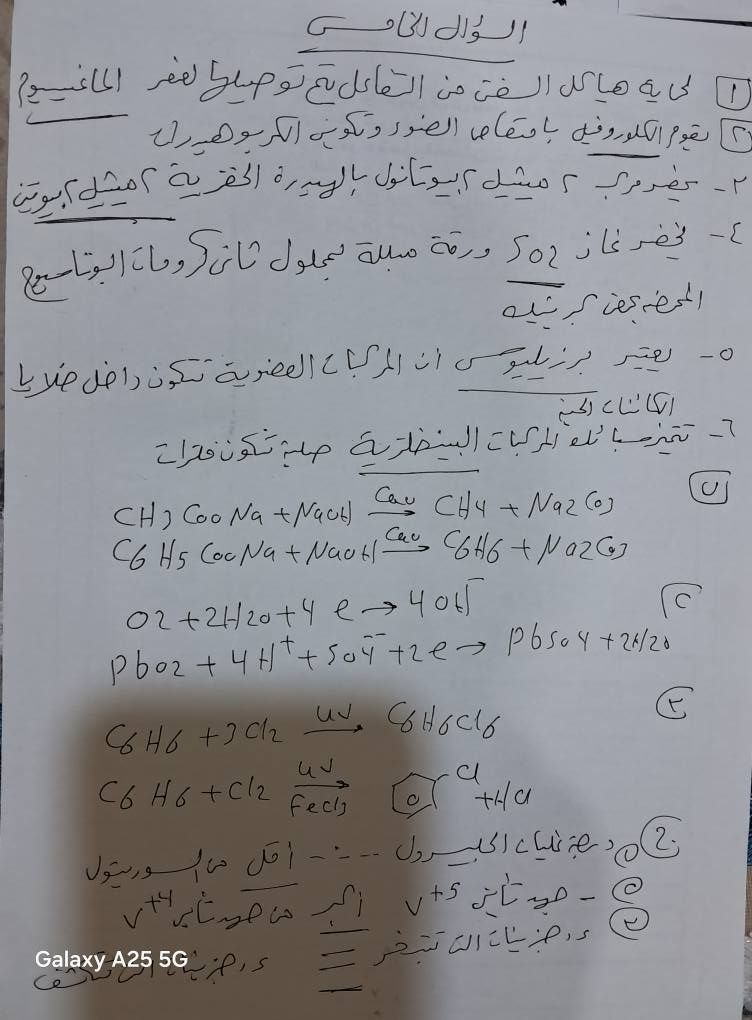 السؤال الخامس
١ لحماية هياكل السفن من التفاعل يتم توصيلها لعنصر الماغنسيوم
٢ يقوم الكلوروفيل بامتصاص الضوء وتكوين الكربوهيدرات
٣- يحضر مركب ٢ ميثيل ٢ بيوتانول بالهيدرة الحفزية ٢ ميثيل ٢ بيوتين
٤- يخضر غاز SO2 ورقة مبللة بمحلول ثاني كرومات البوتاسيوم
المحمضة بحمض كبريتيك
٥- يعتبر برزيليوس ان المركبات العضوية تتكون داخل خلايا
الكائنات الحية
٦- تتميز سبائك المركبات البينفلزية صلبة تتكون فلزات
ب
CH3COONa + NaOH CaO→ CH4 + Na2CO3
C6H5COONa + NaOH CaO→ C6H6 + Na2CO3
O2 + 2H2O + 4e → 4OH⁻
PbO2 + 4H⁺ + SO4⁻⁻ + 2e → PbSO4 + 2H2O
٣
C6H6 + 3Cl2 UV→ C6H6Cl6
C6H6 + Cl2 UV→ FeCl3 Cl + HCl
درجة غليان الجليسرول ----- أقل من السوربيتول
- جهد تأين V⁺⁵ أكبر من جهد تأين V⁺⁴
٣ عدد جزيئات التي تتبخر = عدد جزيئات التي تتكثف
Galaxy A25 5G